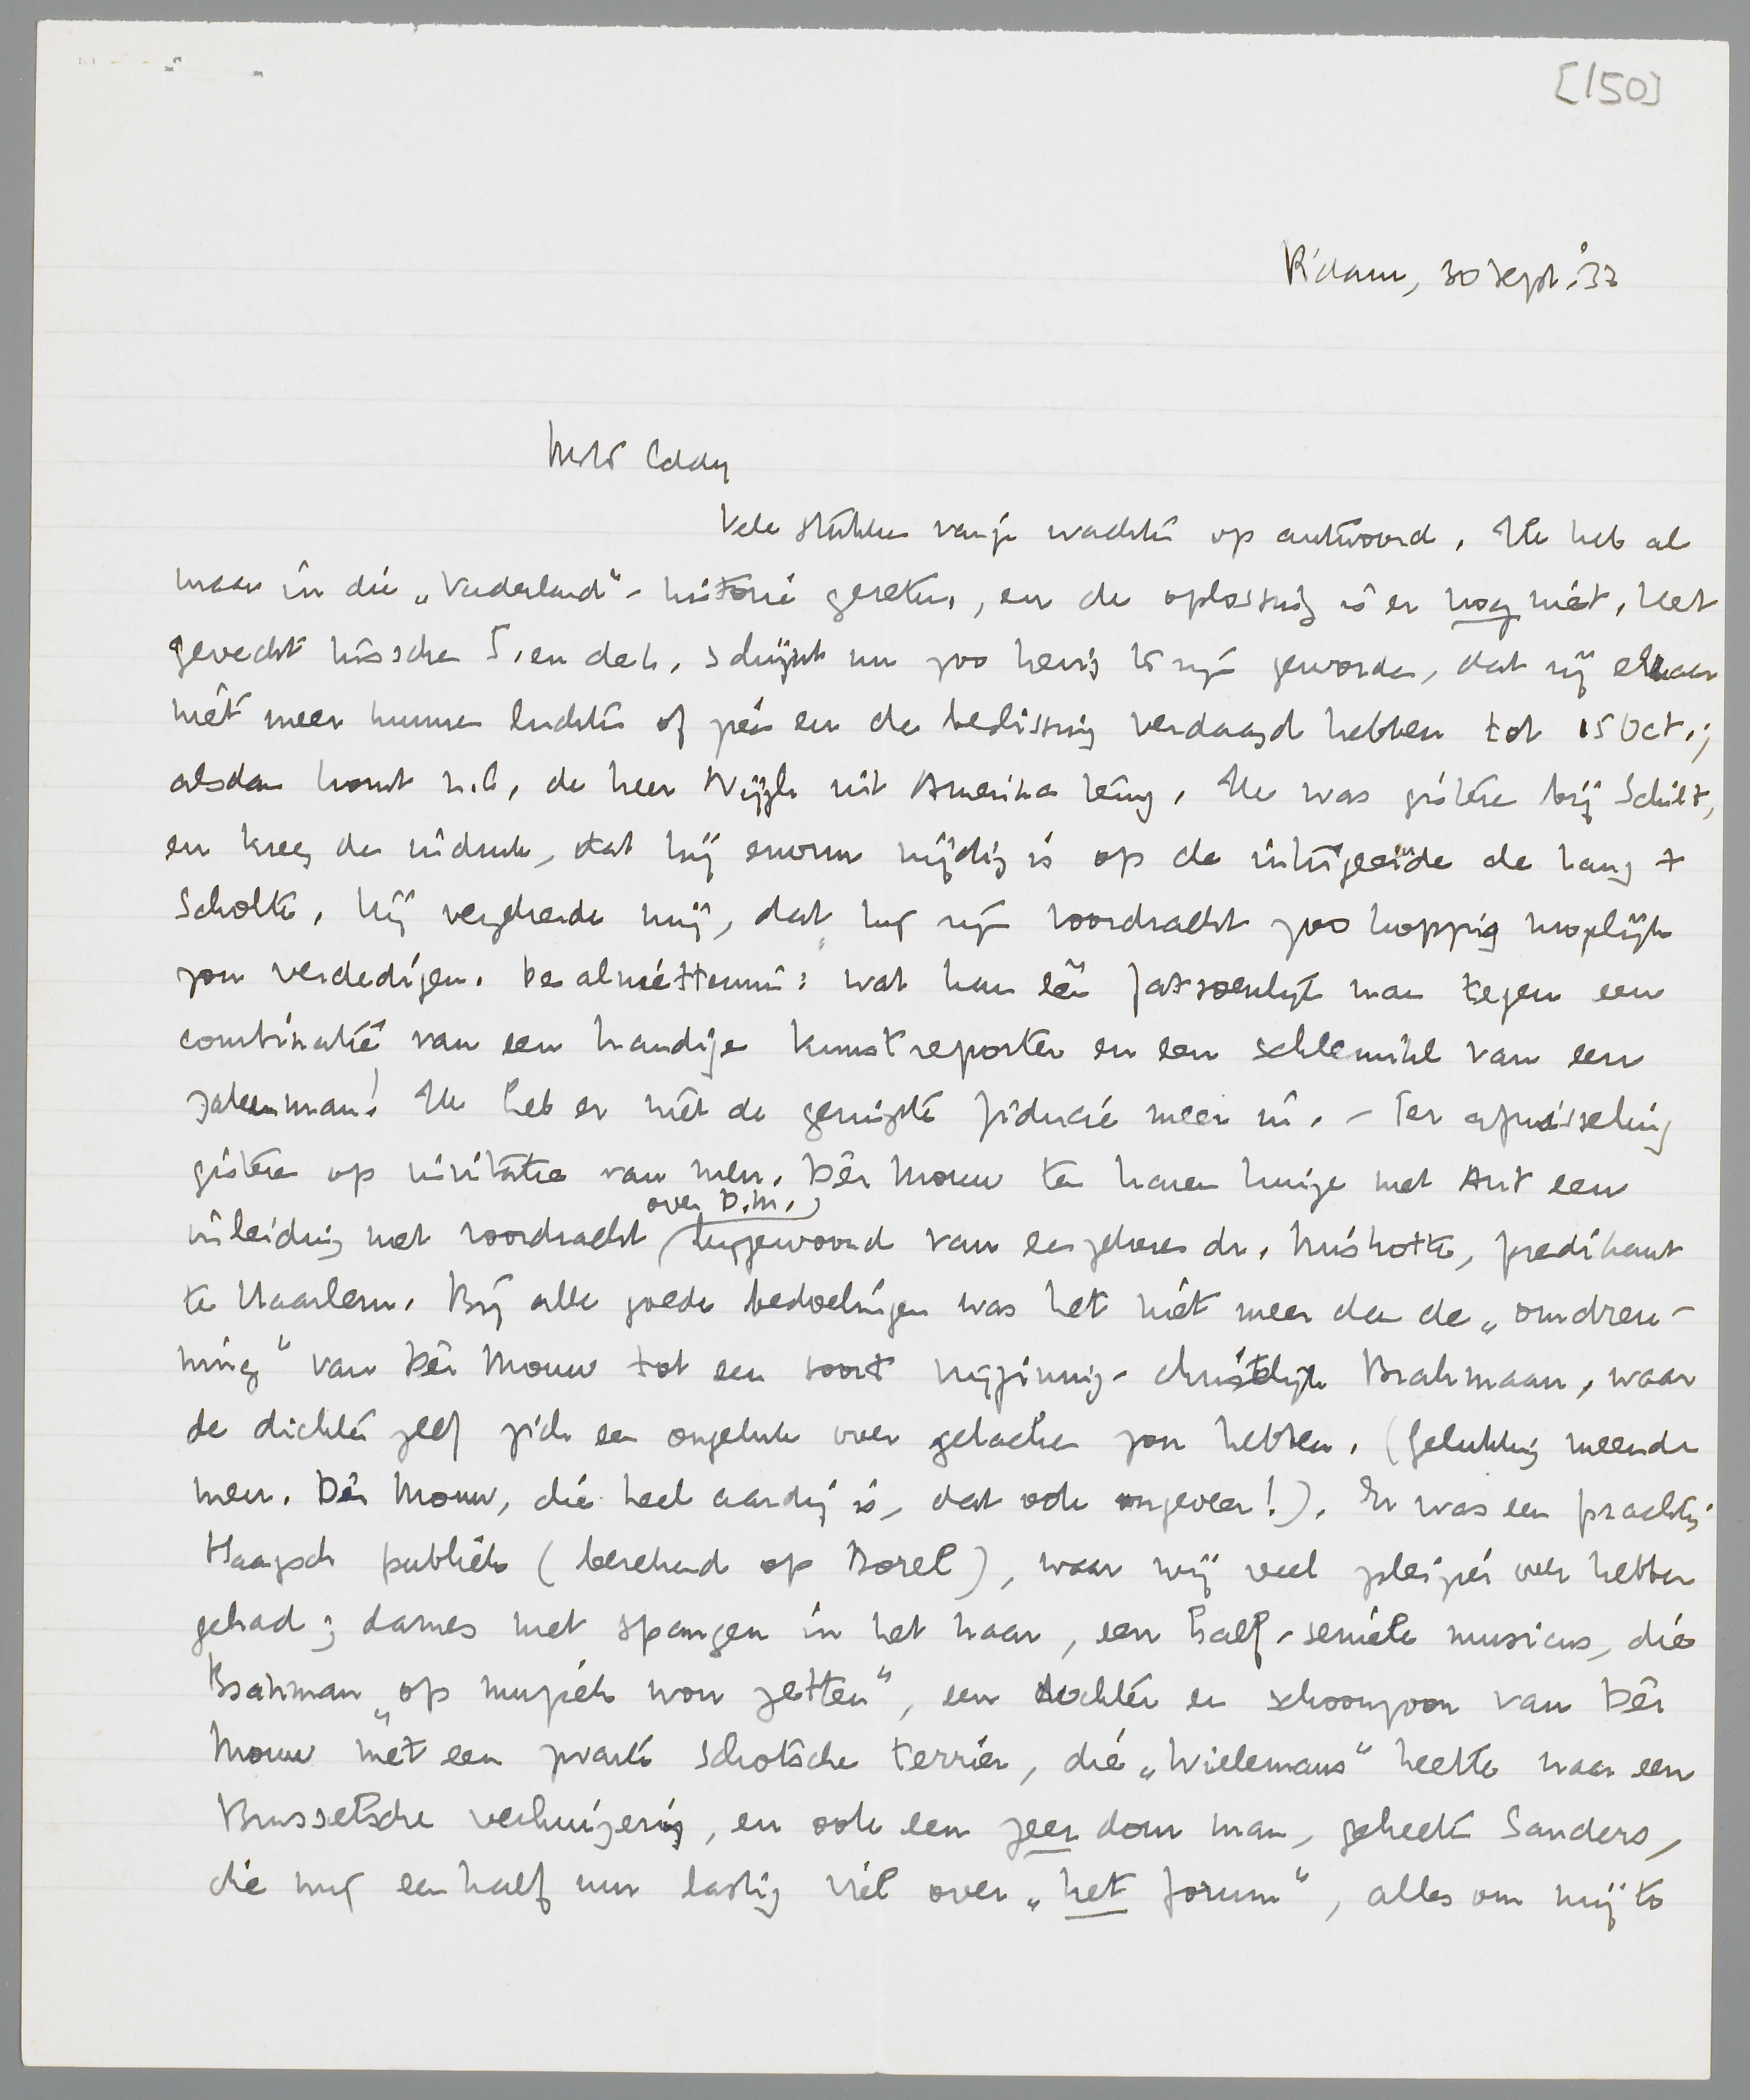 [150]
R'dam, 30 Sept. '33
Beste Eddy
Vele stukken van je wachten op antwoord. Ik heb al
maar in die „Vaderland"-historie gezeten, en de oplossing is er nog niet. Het
gevecht tusschen S. en de H. schijnt nu zoo hevig te zijn geworden, dat zij elkaar
niet meer kunnen luchten of zien en de beslissing verdaagd hebben tot 15 Oct.;
alsdan komt n.l. de heer Nijgh uit Amerika terug. Ik was gisteren bij Schilt,
en kreeg den indruk, dat hij enorm nijdig is op de intrigeerende de Haas +
Scholte. Hij verzekerde mij, dat hij zijn voordracht zoo koppig mogelijk
zou verdedigen. Desalniettemin: wat kan één fatsoenlijk man tegen een
combinatie van een handige kunstreporter en een schlemihl van een
zakenman! Ik heb er niet de geringste fiducie meer in. - Ter afwisseling
gisteren op invitatie van mevr. Dèr Mouw te haren huize met Ant een
inleiding met voordracht over D.M. bijgewoond van een zekeren dr. Miskotte, predikant
te Haarlem. Bij alle goede bedoelingen was het niet meer dan de „omdraai-
ing" van Dèr Mouw tot een soort vrijzinnig-christelijk Brahmaan, waar
de dichter zelf zich een ongeluk over gelachen zou hebben. (Gelukkig meende
mevr. Dèr Mouw, die heel aardig is, dat ook ongeveer!). Er was een prachtig
Haagsch publiek (berekend op Borel), waar wij veel pleizier over hebben
gehad; dames met spangen in het haar, een half-seniele musicus, die
Brahman „op muziek wou zetten", een dochter en schoonzoon van Dèr
Mouw met een zwarte Schotsche terriër, die „Wielemans" heette naar een
Brusselsche verhuizerij, en ook een zeer dom man, geheeten Sanders,
die mij een half uur lastig viel over „het forum", alles om mij te